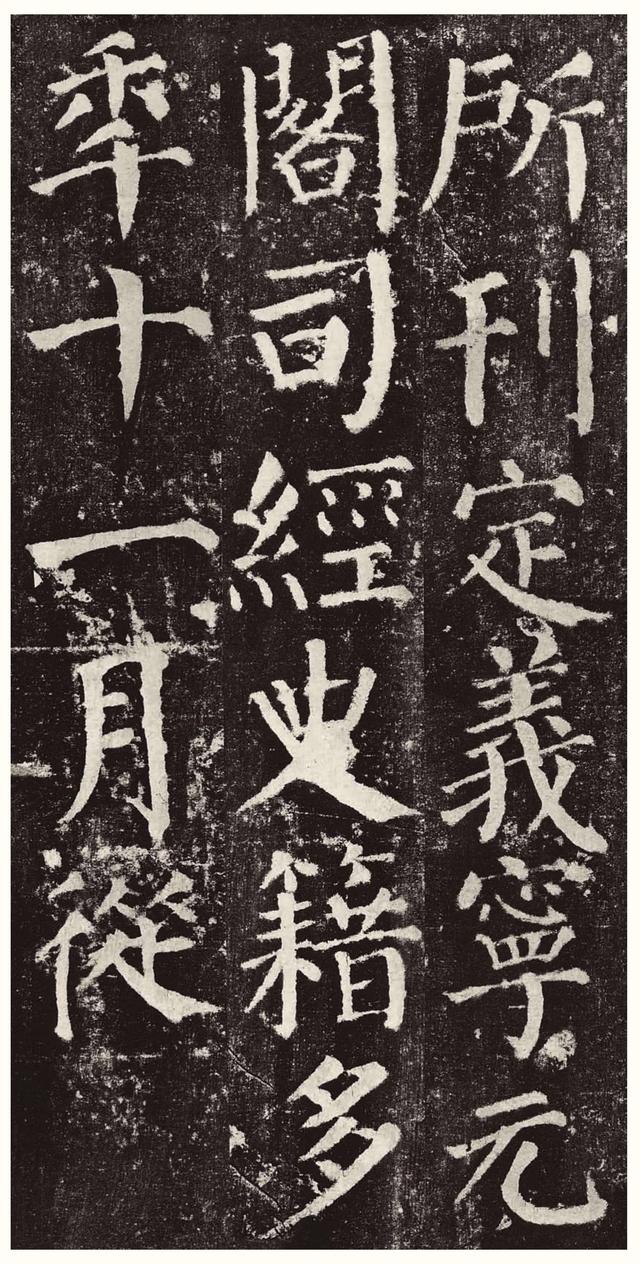 所刊定義寧元
閣司經史籍多
年十一月從